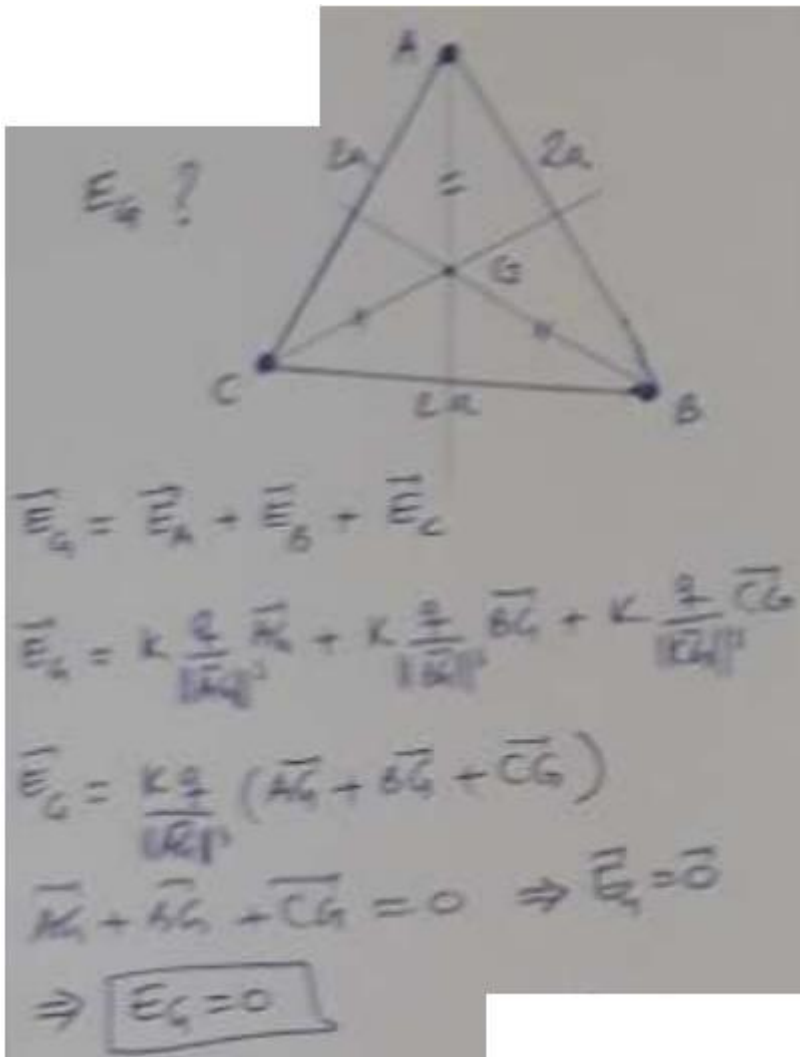 A
2a
2a
E_G ?
G
C
2a
B
\vec{E}_G = \vec{E}_A + \vec{E}_B + \vec{E}_C
\vec{E}_G = K \frac{q}{||\vec{AG}||^3} \vec{AG} + K \frac{q}{||\vec{BG}||^3} \vec{BG} + K \frac{q}{||\vec{CG}||^3} \vec{CG}
\vec{E}_G = \frac{Kq}{||\vec{AG}||^3} (\vec{AG} + \vec{BG} + \vec{CG})
\vec{AG} + \vec{BG} + \vec{CG} = 0 ⇒ \vec{E}_G = \vec{0}
⇒ E_G = 0